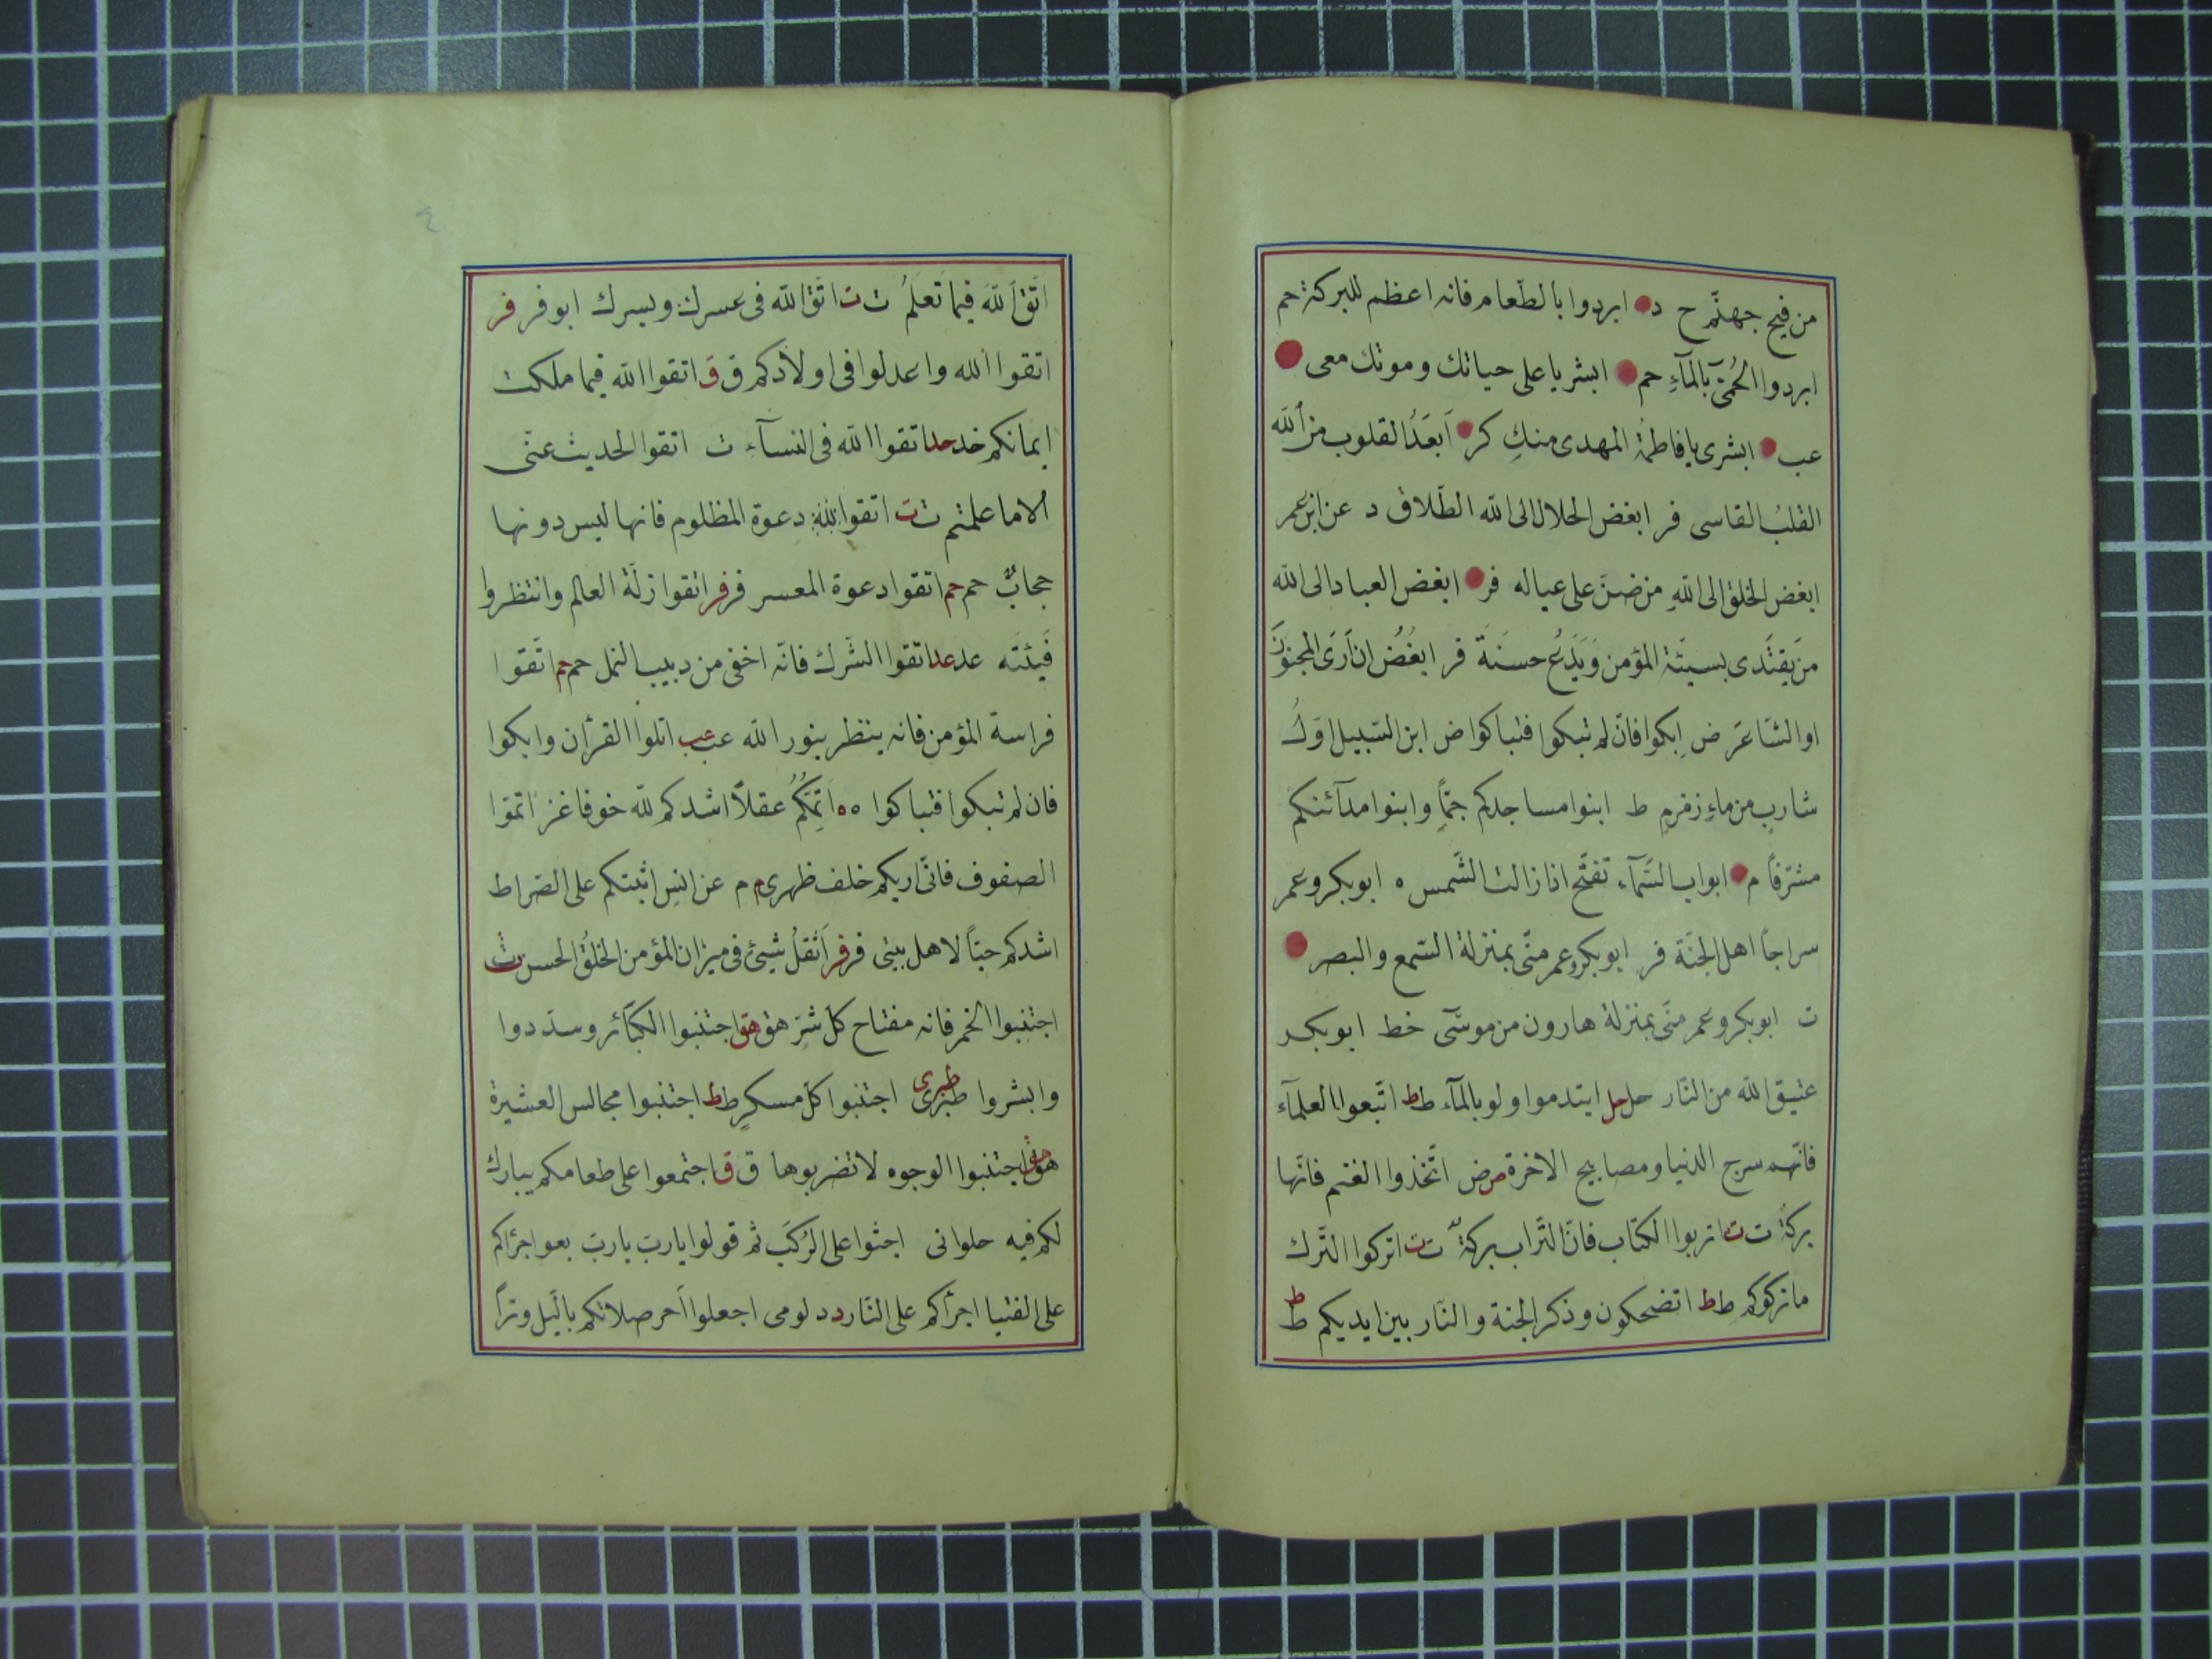 من فيح جهنّم ح د ابردوا بالطّعام فانه اعظم للبركة حم
ابردوا الحُمىّ بالمآءِ حم ابشر يا على حياتك وموتك معى
عب ابشرى يا فاطمةُ المهدى منكِ كر اَبعَدُ القلوب من الله
القلبُ القاسى فر ابغض الحلال الى الله الطّلاق د عن ابن عمر
ابغض الخلق الى اللهِ من ضنّ على عياله فر ابغض العباد الى الله
من يَقتَدى بسيئة المؤمن وَيَدَعُ حسنَةً فر ابغَضُ ان اَرَى المجنونَ
او الشّاعرَ ض اِبكوا فانّ لم تبكوا فتباكوا ض ابن السّبيل اوّلُ
شاربٍ من ماءِ زمزمٍ ط ابنوا مساجدكم جمّاً وابنوا مدآئنكم
مشرّفاً م ابواب السّمآء تفتّح اذا زالت الشّمس ه ابوبكر وعمر
سراجاً اهل الجنّة فر ابوبكر وعمر منّى بمنزلة السّمع والبصر
ت ابوبكر وعمر منّى بمنزلة هارون من موسٓى خط ابوبكر
عتيق الله من النّار حل حل ايتدموا ولو بالمآء ط ط اتّبعوا العلمآء
فانّهم سرج الدنيا ومصابيح الاخرة مرض اتّخذوا الغنم فانّها
بركةٌ ت ت تربوا الكتاب فانّ التّراب بركةٌ ت ت اتركوا التّرك
ما تركوكم ط ط اتضحكون وذكر الجنة والنّار بين ايديكم ط ط
٤
اتّق اللهَ فيما تَعلَمُ ت ت اتّق الله فى عسرك ويسرك ابو فر فر
اتقوا الله واعدلوا فى اولادكم ق ق اتقوا الله فيما ملكت
ايمانكم خد حد اتقوا الله فى النسآء ت اتقوا الحديث عنّى
الا ما علمتم ت ت اتقوا الله دعوة المظلوم فانها ليس دونها
حجابٌ حم حم اتقوا دعوة المعسر فر فر اتقوا زلّة العالم وانتظروا
فَيئتَه عد عد اتقوا الشّرك فانّه اخفى من دبيب النمل حم حم اتّقوا
فراسة المؤمن فانه ينظر بنور الله عب عب اتلوا القرأن وابكوا
فان لم تبكوا فتباكوا ه ه اَتمّكُم عقلاً اشدكم لله خوفا غز اتمّوا
الصفوف فانّى اريكم خلف ظهرى م م عن انسٍ اثبتكم على الصّراط
اشدكم حبّاً لاهل بيتى فر فر اَثقلُ شيئٍ فى ميزان المؤمن الخلُقُ الحسن ت
اجتنبوا الخمر فانه مفتاح كل شرّ هق هق اجتنبوا الكبائر وسدّدوا
وابشروا طبرى طبرى اجتنبوا كل مسكرٍ ط ط اجتنبوا مجالس العشيرة
هق هق اجتنبوا الوجوه لا تضربوها ق ق اجتمعوا على طعامكم يبارك
لكم فيه حلوانى اجثوا على الرُكَبِ ثم قولوا يا ربّ يا ربّ بعو اجرأكم
على الفتيا اجرأكم على النّار د د لومى اجعلوا آخر صلاتكم بالّيل وتراً